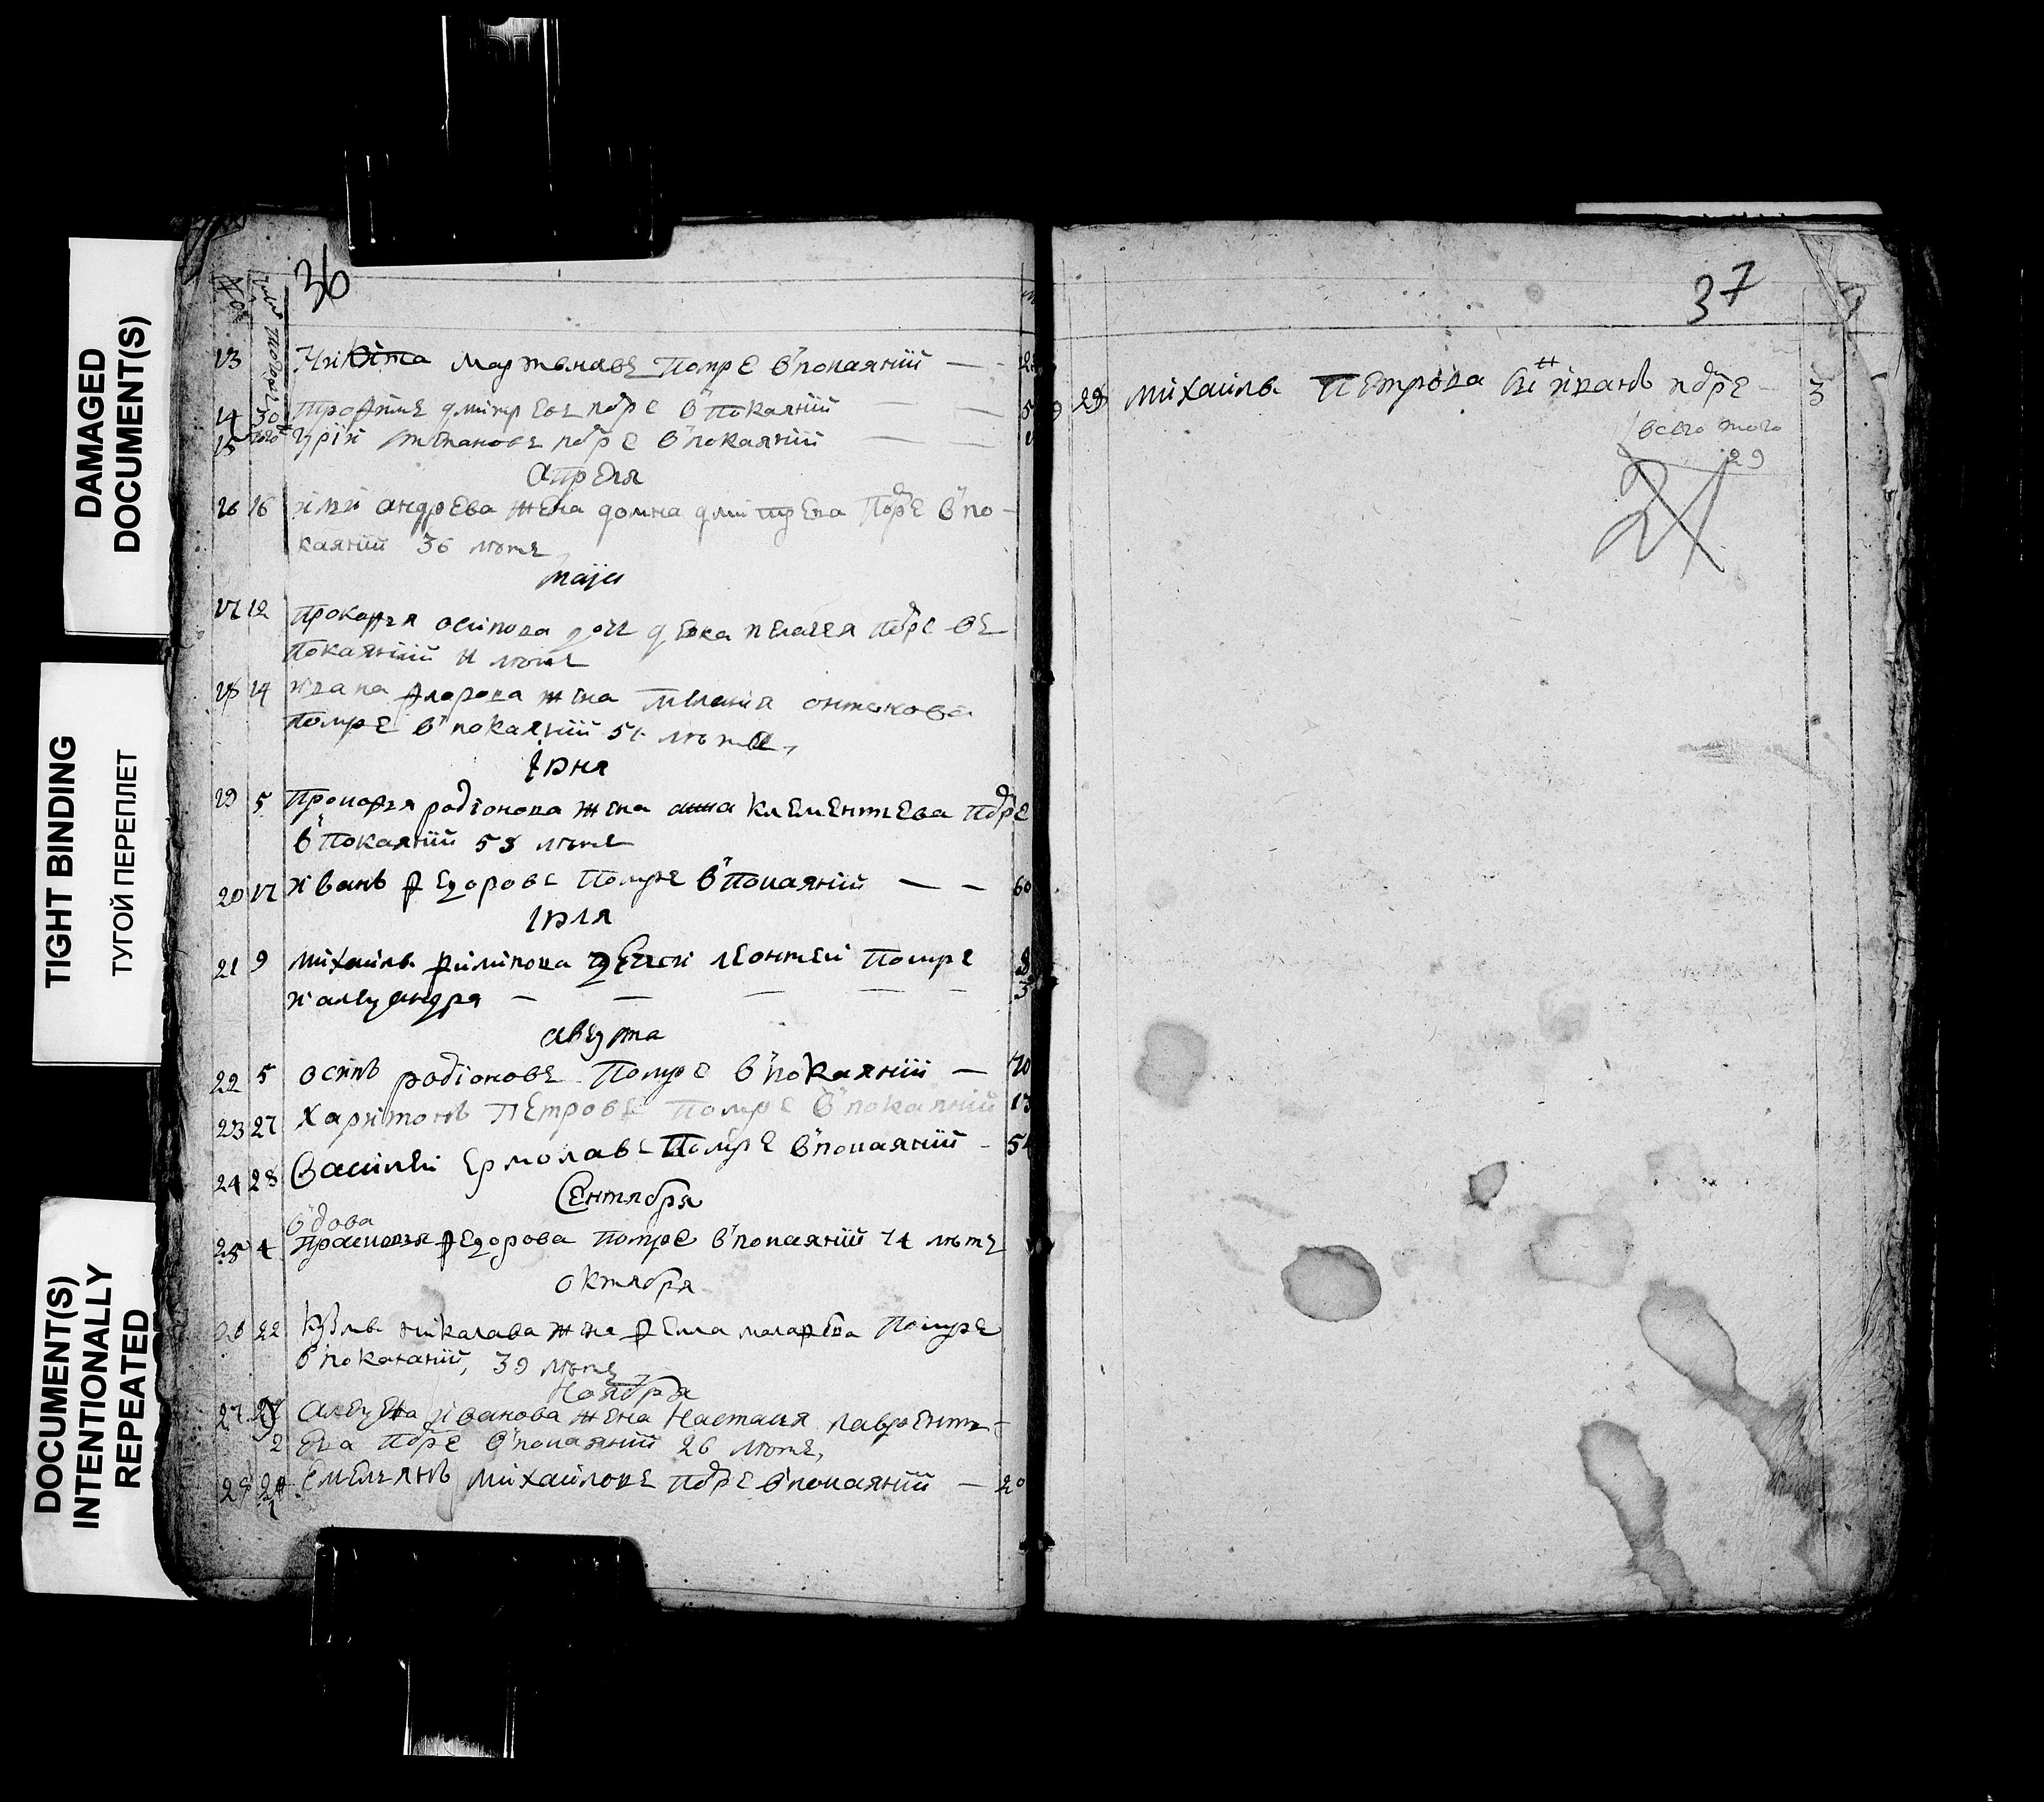 DAMAGED
DOCUMENT(S)
TIGHT BINDING
ТУГОЙ ПЕРЕПЛЕТ
DOCUMENT(S)
INTENTIONALLY
REPEATED
36
13 Никита мартынавъ Помре в покаянїи
14 30 Трофімъ дмитревъ помре в покаянїи 5
15 Гурїй степановъ помре в покаянїи
Апреля
16 16 андрева жена домна дмитрева Помре в по-
каянїи 36 летъ
маїя
17 12 Прокофья осипова дочь девка пелагея помре въ
Покаянїи 11 летъ
18 14 ивана фларова жена мелания
Помре в покаянїи 51 лета
Іюня
19 5 Прокофья родіонова жена анна клементьева Помре
в Покаянїи 58 летъ
20 17 иванъ федоровъ Помре в Покаянїи 60
Іюля
21 9 михаила филипова дети леонтей Помре
и александра 3
августа
22 5 осипъ родіоновъ Помре в покаянїи 70
23 27 Харитонъ Петровъ Помре в покаянїи 13
24 28 Василей Ермолавъ Помре в покаянїи
Сентября
вдова
25 4 федорова Помре в покаянїи 74 летъ
октября
26 22 Кузмы николава жена фекла Помре
в покаянїи, 39 летъ
Ноября
27 Алексея иванова жена Настасия лаврент-
2 ева Помре в покаянїи 26 летъ,
28 Емельянъ михайловъ помре в покаянїи 20
37
29 михаила Петрова сынъ иванъ помре 3
всего того
29